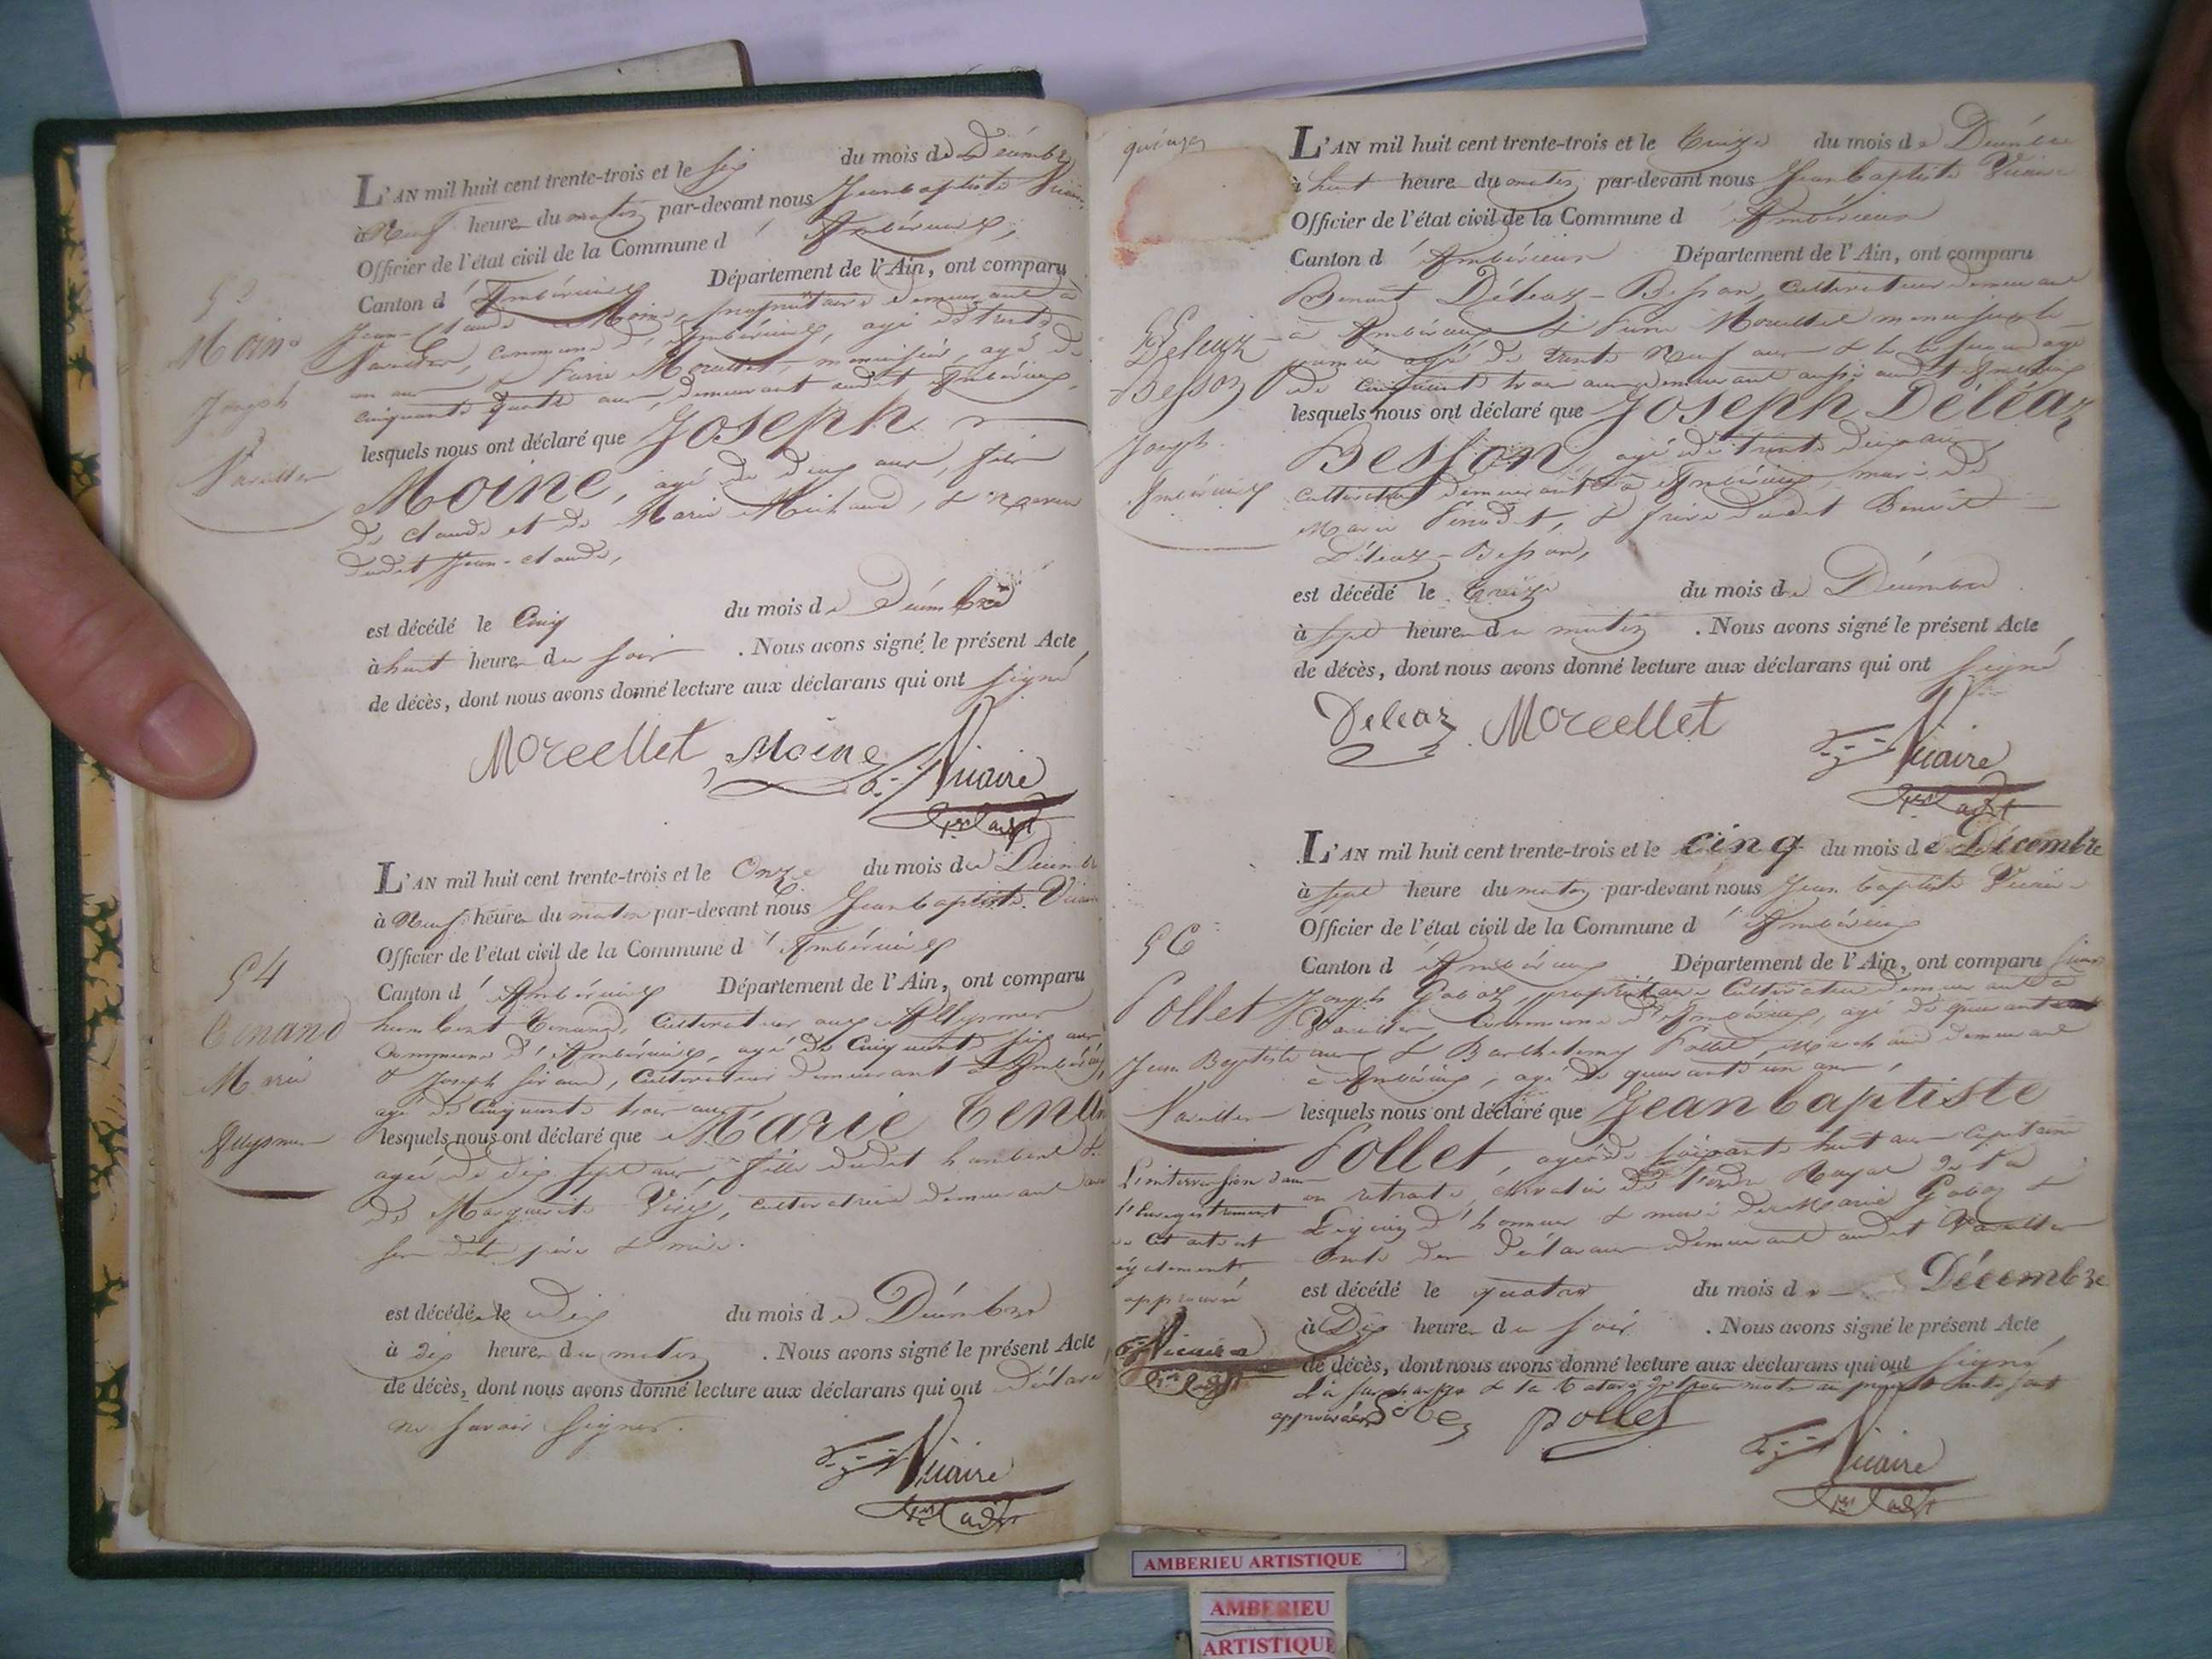 L'AN mil huit cent trente-trois et le six du mois de Décembre
à Neuf heure du matin par-devant nous Jean baptiste Vicaire,
Officier de l'état civil de la Commune d'Ambérieux,
Canton d'Ambérieux Département de l'Ain, ont comparu
Jean-Claude Moine, propriétaire demeurant à
Vareilles, commune d'Ambérieux, agé de trente
un ans & Morcellet, menuisier, agé de
cinquante quatre ans, demeurant audit Ambérieux,
lesquels nous ont déclaré que Joseph
Moine, agé de deux ans, fils
de Claude et de Marie Michaud, & neveu
dudit Jean-Claude,
est décédé le Cinq du mois de Décembre
à huit heure du soir . Nous avons signé le présent Acte
de décès, dont nous avons donné lecture aux déclarans qui ont signé
Morcellet Moine Vicaire
1er adjt
Moine
Joseph
Vareilles
L'AN mil huit cent trente-trois et le Onze du mois de Décembre
à Neuf heure du matin par-devant nous Jean baptiste Vicaire
Officier de l'état civil de la Commune d'Ambérieux
Canton d'Ambérieux Département de l'Ain, ont comparu
humbert Tenand, Cultivateur aux Allymes
Commune d'Ambérieux, agé de Cinquante six ans
& Joseph Giraud, Cultivateur demeurant à Ambérieux,
agé de Cinquante trois ans
lesquels nous ont déclaré que Marie Tenand
agée de dix sept ans, fille dudit humbert &
de Marguerite, cultivatrice demeurant avec
ses dits père & mère.
est décédée le dix du mois de Décembre
à dix heure du matin . Nous avons signé le présent Acte
de décès, dont nous avons donné lecture aux déclarans qui ont Déclaré
ne savoir signer.
Vicaire
1er adjt
54
Tenand
Marie
Allymes
quinze
L'AN mil huit cent trente-trois et le treize du mois de Décembre
à huit heure du matin par-devant nous Jean baptiste Vicaire
Officier de l'état civil de la Commune d'Ambérieux
Canton d'Ambérieux Département de l'Ain, ont comparu
Benoit Déléaz-Besson, Cultivateur demeurant
à Ambérieux & Morcellet menuisier le
premier agé de trente Neuf ans & le second agé
de cinquante trois ans demeurant aussi audit Ambérieux
lesquels nous ont déclaré que Joseph Déléaz
Besson, agé de trente deux ans,
cultivateur demeurant à Ambérieux, mari de
Marie, & frère dudit Benoit
Déléaz-Besson,
est décédé le treize du mois de Décembre
à sept heure du matin . Nous avons signé le présent Acte
de décès, dont nous avons donné lecture aux déclarans qui ont signé
Deleaz Morcellet Vicaire
1er adjt
55
Deleaz
Besson
Joseph
Ambérieux
L'AN mil huit cent trente-trois et le cinq du mois de Décembre
à sept heure du matin par-devant nous Jean baptiste Vicaire
Officier de l'état civil de la Commune d'Ambérieux
Canton d'Ambérieux Département de l'Ain, ont comparu
Joseph Gobaz, propriétaire Cultivateur demeurant à
Vareilles, Commune d'Ambérieux, agé de quarante
ans & Barthelemy Pollet, Marchand demeurant
à Ambérieux, agé de quarante un ans,
lesquels nous ont déclaré que Jean baptiste
Pollet, agé de soixante huit ans Capitaine
en retraite, chevalier de l'ordre Royal de la
Légion d'honneur & mari de Marie Gobaz &
Oncle des Déclarans demeurant audit Vareilles
est décédé le quatre du mois de Décembre
à Dix heure du soir . Nous avons signé le présent Acte
de décès, dont nous avons donné lecture aux déclarans qui ont signé
La surcharge & la rature de trois mots au présent acte sont
approuvées Gobaz pollet
Vicaire
1er adjt
56
Pollet
Jean Baptiste
Vareilles
L'interversion dans
l'Enregistrement
de cet acte est
également
approuvé
Vicaire
1er adjt
AMBERIEU ARTISTIQUE
AMBERIEU
ARTISTIQUE